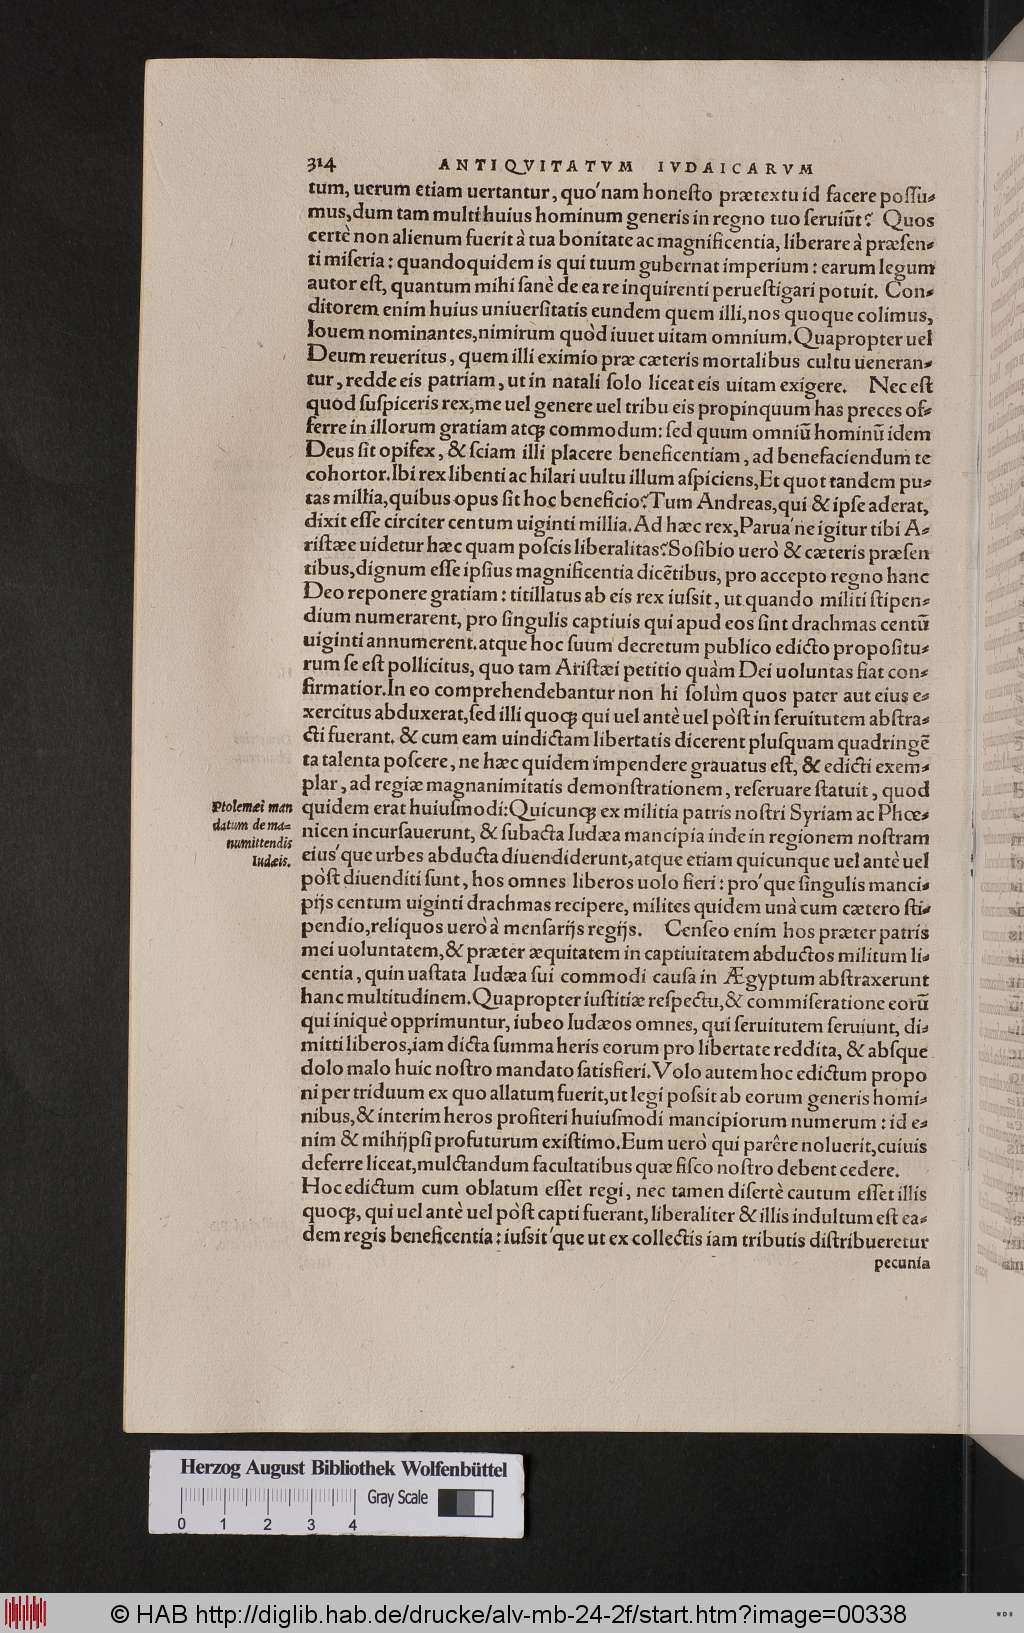 314 ANTIQVITATVM IVDAICARVM
tum, uerum etiam uertantur, quo'nam honeſto prætextu id facere poſſu-
mus, dum tam multi huius hominum generis in regno tuo ſeruiūt? Quos
certè non alienum fuerit à tua bonitate ac magnificentia, liberare à præſen-
ti miſeria: quandoquidem is qui tuum gubernat imperium: earum legum
autor eſt, quantum mihi ſanè de ea re inquirenti perueſtigari potuit. Con-
ditorem enim huius uniuerſitatis eundem quem illi, nos quoque colimus,
Iouem nominantes, nimirum quòd iuuet uitam omnium. Quapropter uel
Deum reueritus, quem illi eximio præ cæteris mortalibus cultu ueneran-
tur, redde eis patriam, ut in natali ſolo liceat eis uitam exigere. Nec eſt
quod ſuſpiceris rex, me uel genere uel tribu eis propinquum has preces of-
ferre in illorum gratiam atq; commodum: ſed quum omniū hominū idem
Deus ſit opifex, & ſciam illi placere beneficentiam, ad benefaciendum te
cohortor. Ibi rex libenti ac hilari uultu illum aſpiciens, Et quot tandem pu-
tas millia, quibus opus ſit hoc beneficio? Tum Andreas, qui & ipſe aderat,
dixit eſſe circiter centum uiginti millia. Ad hæc rex, Parua'ne igitur tibi A-
riſtæe uidetur hæc quam poſcis liberalitas? Soſibio uerò & cæteris præſen
tibus, dignum eſſe ipſius magnificentia dicētibus, pro accepto regno hanc
Deo reponere gratiam: titillatus ab eis rex iuſsit, ut quando militi ſtipen-
dium numerarent, pro ſingulis captiuis qui apud eos ſint drachmas centū
uiginti annumerent. atque hoc ſuum decretum publico edicto propoſitu-
rum ſe eſt pollicitus, quo tam Ariſtæi petitio quàm Dei uoluntas fiat con-
firmatior. In eo comprehendebantur non hi ſolùm quos pater aut eius e-
xercitus abduxerat, ſed illi quoq; qui uel antè uel pòſt in ſeruitutem abſtra-
cti fuerant. & cum eam uindictam libertatis dicerent pluſquam quadringē
ta talenta poſcere, ne hæc quidem impendere grauatus eſt, & edicti exem-
plar, ad regiæ magnanimitatis demonſtrationem, reſeruare ſtatuit, quod
Ptolemæi man
datum de ma-
numittendis
Iudæis.
quidem erat huiuſmodi: Quicunq; ex militia patris noſtri Syriam ac Phœ-
nicen incurſauerunt, & ſubacta Iudæa mancipia inde in regionem noſtram
eius'que urbes abducta diuendiderunt, atque etiam quicunque uel antè uel
pòſt diuenditi ſunt, hos omnes liberos uolo fieri: pro'que ſingulis manci-
pijs centum uiginti drachmas recipere, milites quidem unà cum cætero ſti-
pendio, reliquos uerò à menſarijs regijs. Cenſeo enim hos præter patris
mei uoluntatem, & præter æquitatem in captiuitatem abductos militum li-
centia, quin uaſtata Iudæa ſui commodi cauſa in Ægyptum abſtraxerunt
hanc multitudinem. Quapropter iuſtitiæ reſpectu, & commiſeratione eorū
qui iniquè opprimuntur, iubeo Iudæos omnes, qui ſeruitutem ſeruiunt, di-
mitti liberos, iam dicta ſumma heris eorum pro libertate reddita, & abſque
dolo malo huic noſtro mandato ſatisfieri. Volo autem hoc edictum propo
ni per triduum ex quo allatum fuerit, ut legi poſsit ab eorum generis homi-
nibus, & interim heros profiteri huiuſmodi mancipiorum numerum: id e-
nim & mihijpſi profuturum exiſtimo. Eum uerò qui parêre noluerit, cuiuis
deferre liceat, mulctandum facultatibus quæ fiſco noſtro debent cedere.
Hoc edictum cum oblatum eſſet regi, nec tamen diſertè cautum eſſet illis
quoq;, qui uel antè uel pòſt capti fuerant, liberaliter & illis indultum eſt ea-
dem regis beneficentia: iuſsit'que ut ex collectis iam tributis diſtribueretur
pecunia
Herzog August Bibliothek Wolfenbüttel
Gray Scale
0 1 2 3 4
© HAB http://diglib.hab.de/drucke/alv-mb-24-2f/start.htm?image=00338